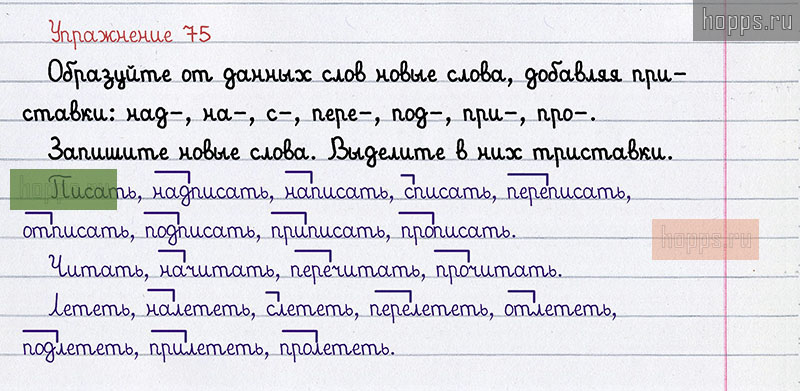 hopps.ru
Упражнение 75
Образуйте от данных слов новые слова, добавляя при-
ставки: над-, на-, с-, пере-, под-, при-, про-.
Запишите новые слова. Выделите в них триставки.
hopps.ru
Писать, надписать, написать, списать, переписать,
отписать, подписать, приписать, прописать.
hopps.ru
Читать, начитать, перечитать, прочитать.
Лететь, налететь, слететь, перелететь, отлететь,
подлететь, прилететь, пролететь.